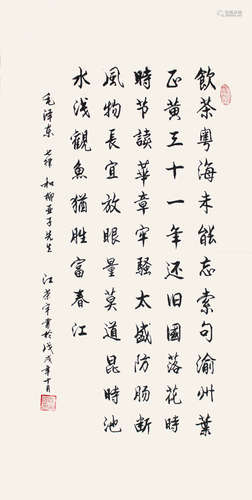 飲茶粵海未能忘索句渝州葉
正黃三十一年还旧國落花時
時节讀華章牢騷太盛防肠断
風物長宜放眼量莫道昆時池
水浅觀魚猶胜富春江
毛泽东 七律 和柳亚子先生 江荣宇書於戊戌年十月